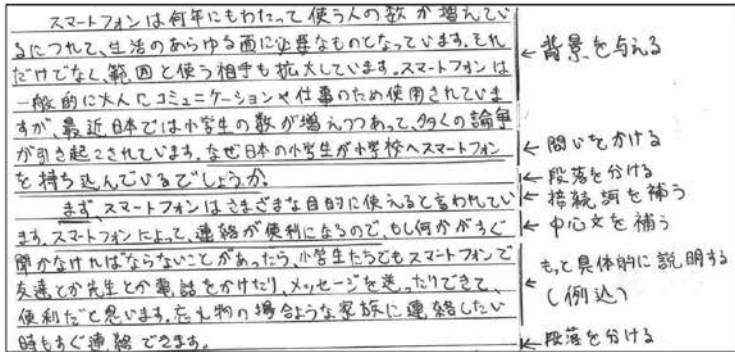 スマートフォンは何年にもわたって使う人の数が増えてい
るにつれて、生活のあらゆる面に必要なものとなっています。それ
だけでなく、範囲と使う相手も拡大しています。スマートフォンは
一般的に大人にコミュニケーションや仕事のため使用されていま
すが、最近日本では小学生の数が増えつつあって、多くの論争
が引き起こされています。なぜ日本の小学生が小学校へスマートフォン
を持ち込んでいるでしょうか。
まず、スマートフォンはさまざまな目的に使えると言われてい
ます。スマートフォンによって、連絡が便利になるので、もし何かがすぐ
聞かなければならないことがあったら、小学生たちでもスマートフォンで
友達とか先生とか電話をかけたり、メッセージを送ったりできて、
便利だと思います。忘れ物の場合ような家族に連絡したい
時もすぐ連絡できます。
←背景を与える
←問いをかける
←段落を分ける
←接続詞を補う
←中心文を補う
もっと具体的に説明する
←(例込)
←段落を分ける